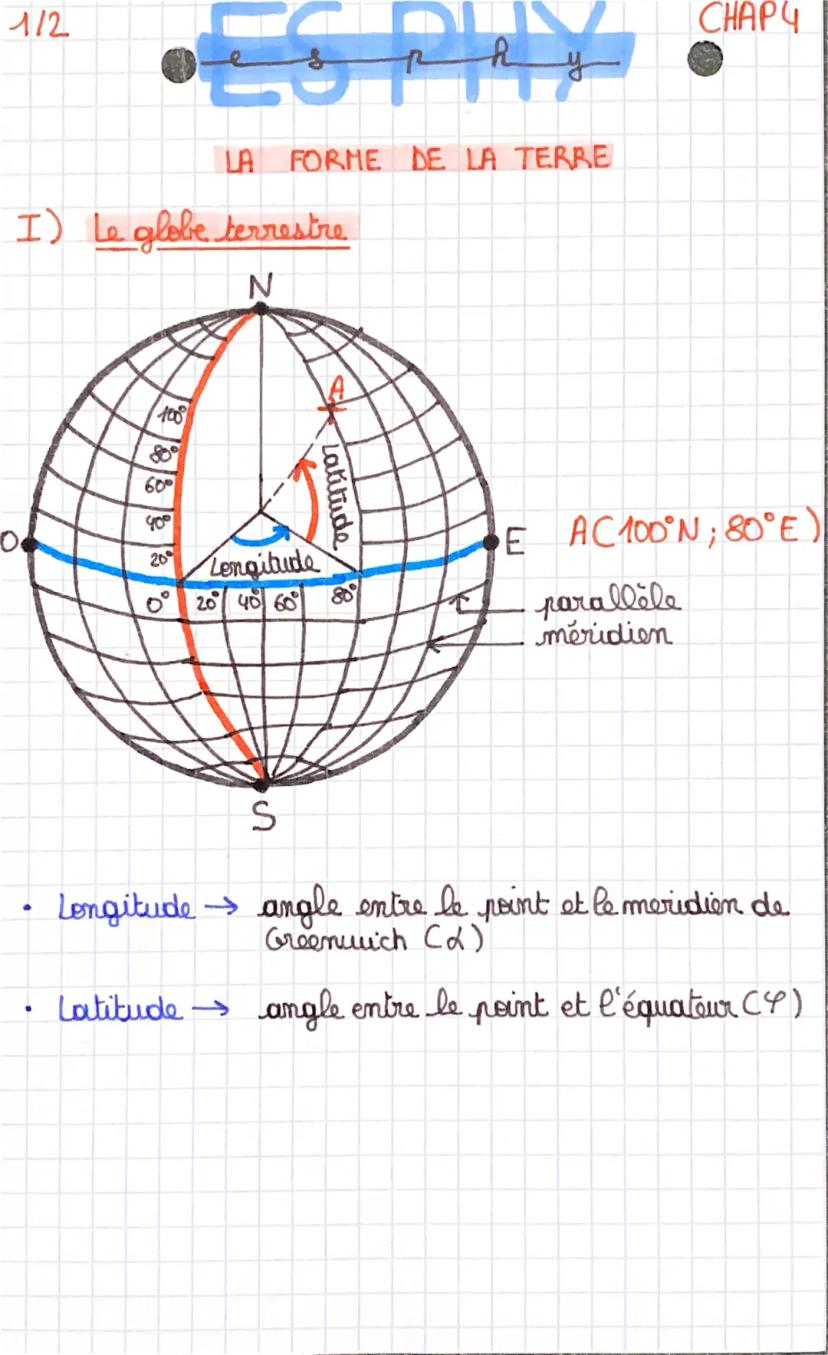 1/2
ES PHY
CHAP4
e s p h y
LA FORME DE LA TERRE
I) Le globe terrestre
N
A
100°
80°
60°
40°
20°
Latitude
Longitude
O
E
A(100°N; 80°E)
0° 20° 40° 60° 80°
parallèle
méridien
S
• Longitude → angle entre le point et le meridien de
Greenwich (α)
• Latitude → angle entre le point et l'équateur (φ)